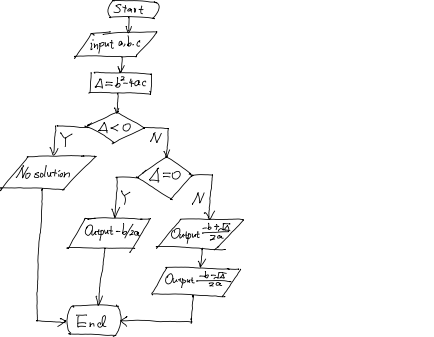 Start
input a,b,c
Δ=b²-4ac
Δ<0
Y
N
No solution
Δ=0
Y
N
Output -b/2a
Output (-b+√Δ)/2a
Output (-b-√Δ)/2a
End